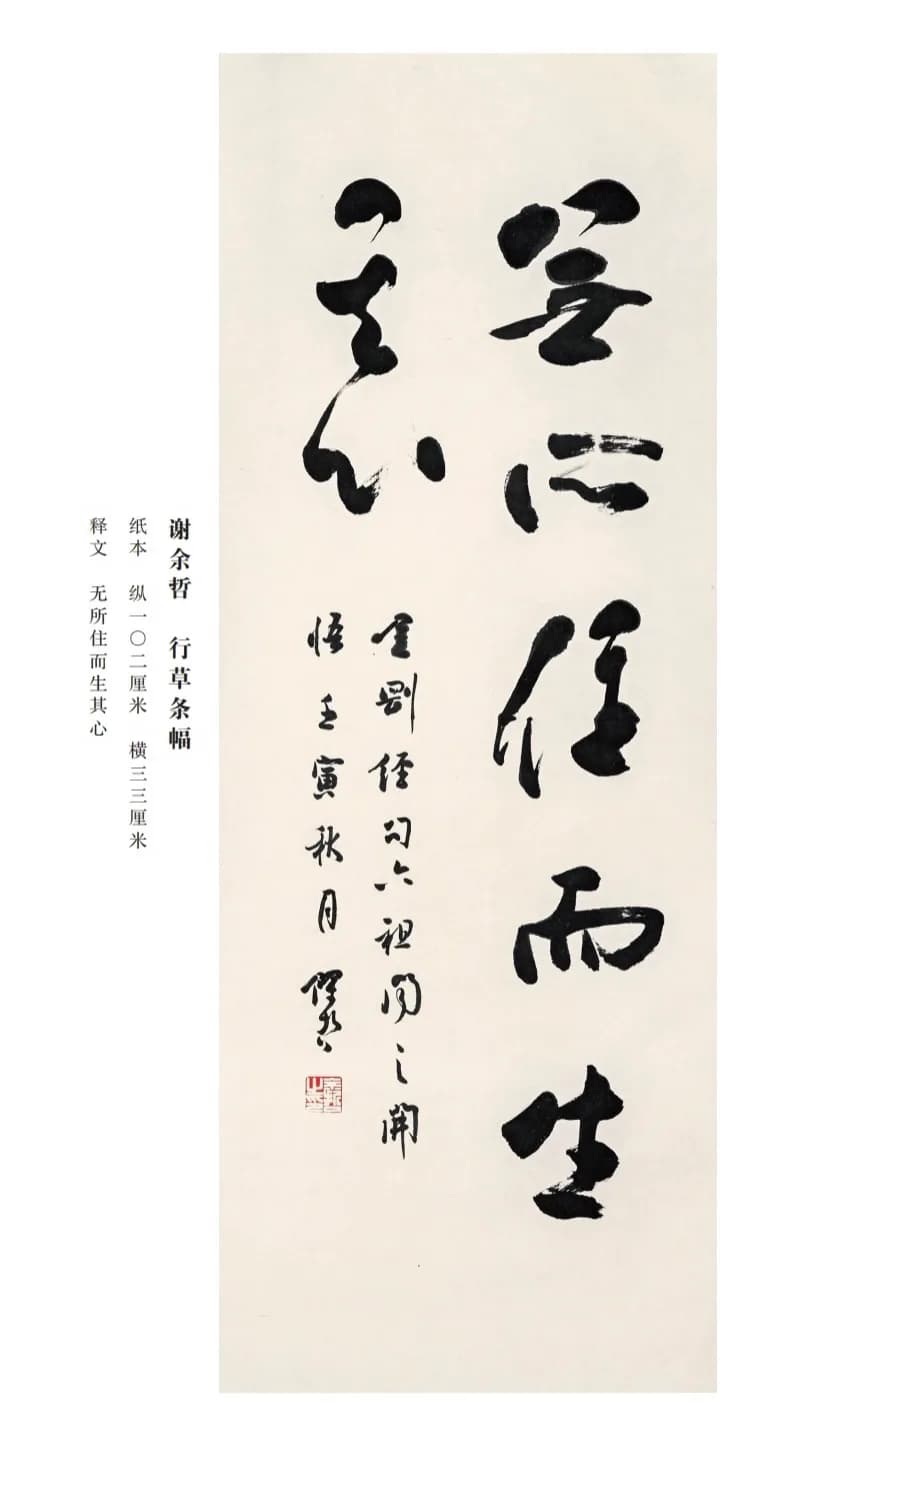 無所住而生
其心
金剛經句六祖聞之開
悟壬寅秋月
谢余哲 行草条幅
纸本 纵一〇二厘米 横三三厘米
释文 无所住而生其心